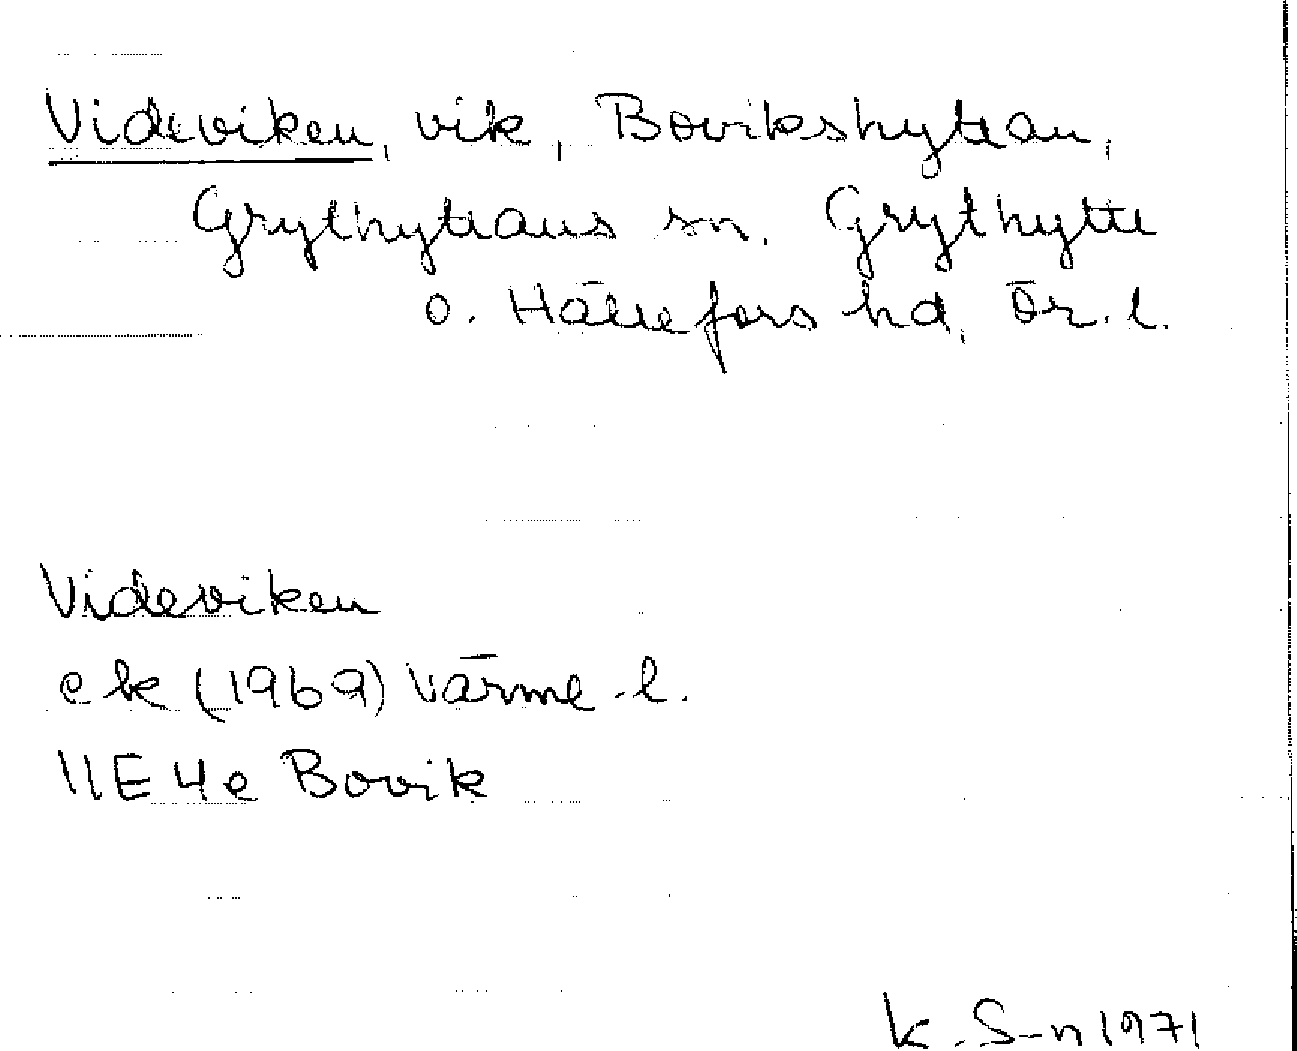 Videviken, vik, Bovikshyttan,
Grythyttans sn. Grythytte
o. Hällefors hd, Ör. l.
Videviken
ek (1969) Värml. l.
11E 4e Bovik
K. S-n 1971